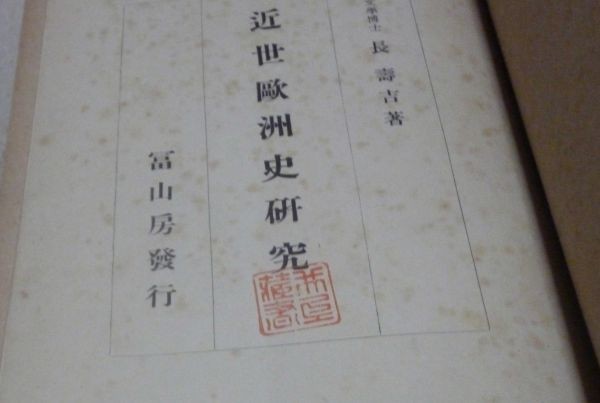 文學博士 長壽吉著
近世歐洲史硏究
冨山房發行
藏書